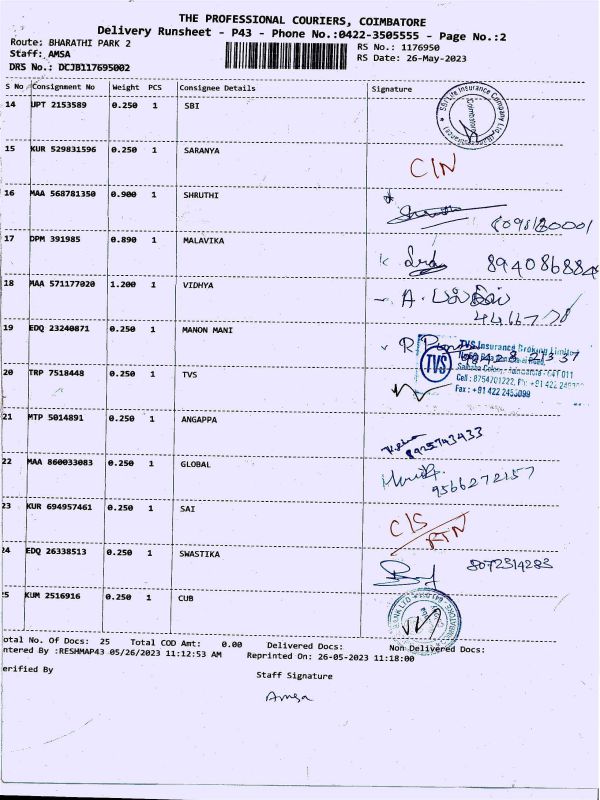 THE PROFESSIONAL COURIERS, COIMBATORE
Delivery Runsheet - P43 - Phone No.:0422-3505555 - Page No.:2
Route: BHARATHI PARK 2
RS No.: 1176950
Staff: AMSA
RS Date: 26-May-2023
DRS No.: DCJB117695002
S No Consignment No Weight PCS Consignee Details Signature
14 UPT 2153589 0.250 1 SBI
SBI Life Insurance Company Ltd
Coimbatore
15 KUR 529831596 0.250 1 SARANYA
C/N
16 MAA 568781350 0.900 1 SHRUTHI
17 DPM 391985 0.890 1 MALAVIKA
894086884
18 MAA 571177020 1.200 1 VIDHYA
A.
19 EDQ 23240871 0.250 1 MANON MANI
R
TVS Insurance Broking Limited
20 TRP 7518448 0.250 1 TVS
TVS
Cell : 8754701222,
Fax : +91 422
21 MTP 5014891 0.250 1 ANGAPPA
8925743433
22 MAA 860033083 0.250 1 GLOBAL
9566272157
23 KUR 694957461 0.250 1 SAI
C/S
RTN
24 EDQ 26338513 0.250 1 SWASTIKA
8072314283
5 KUM 2516916 0.250 1 CUB
otal No. Of Docs: 25 Total COD Amt: 0.00 Delivered Docs: Non Delivered Docs:
ntered By :RESHMAP43 05/26/2023 11:12:53 AM Reprinted On: 26-05-2023 11:18:00
erified By
Staff Signature
Amsa